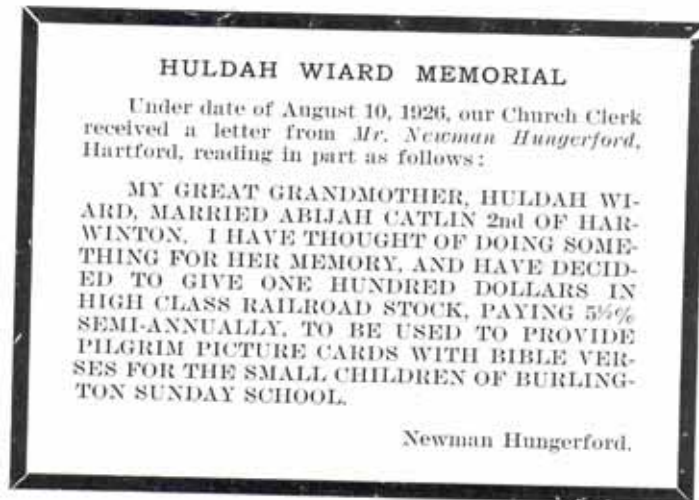 HULDAH WIARD MEMORIAL
Under date of August 10, 1926, our Church Clerk
received a letter from Mr. Newman Hungerford,
Hartford, reading in part as follows:
MY GREAT GRANDMOTHER, HULDAH WI-
ARD, MARRIED ABIJAH CATLIN 2nd OF HAR-
WINTON. I HAVE THOUGHT OF DOING SOME-
THING FOR HER MEMORY, AND HAVE DECID-
ED TO GIVE ONE HUNDRED DOLLARS IN
HIGH CLASS RAILROAD STOCK, PAYING 5½%
SEMI-ANNUALLY, TO BE USED TO PROVIDE
PILGRIM PICTURE CARDS WITH BIBLE VER-
SES FOR THE SMALL CHILDREN OF BURLING-
TON SUNDAY SCHOOL.
Newman Hungerford.